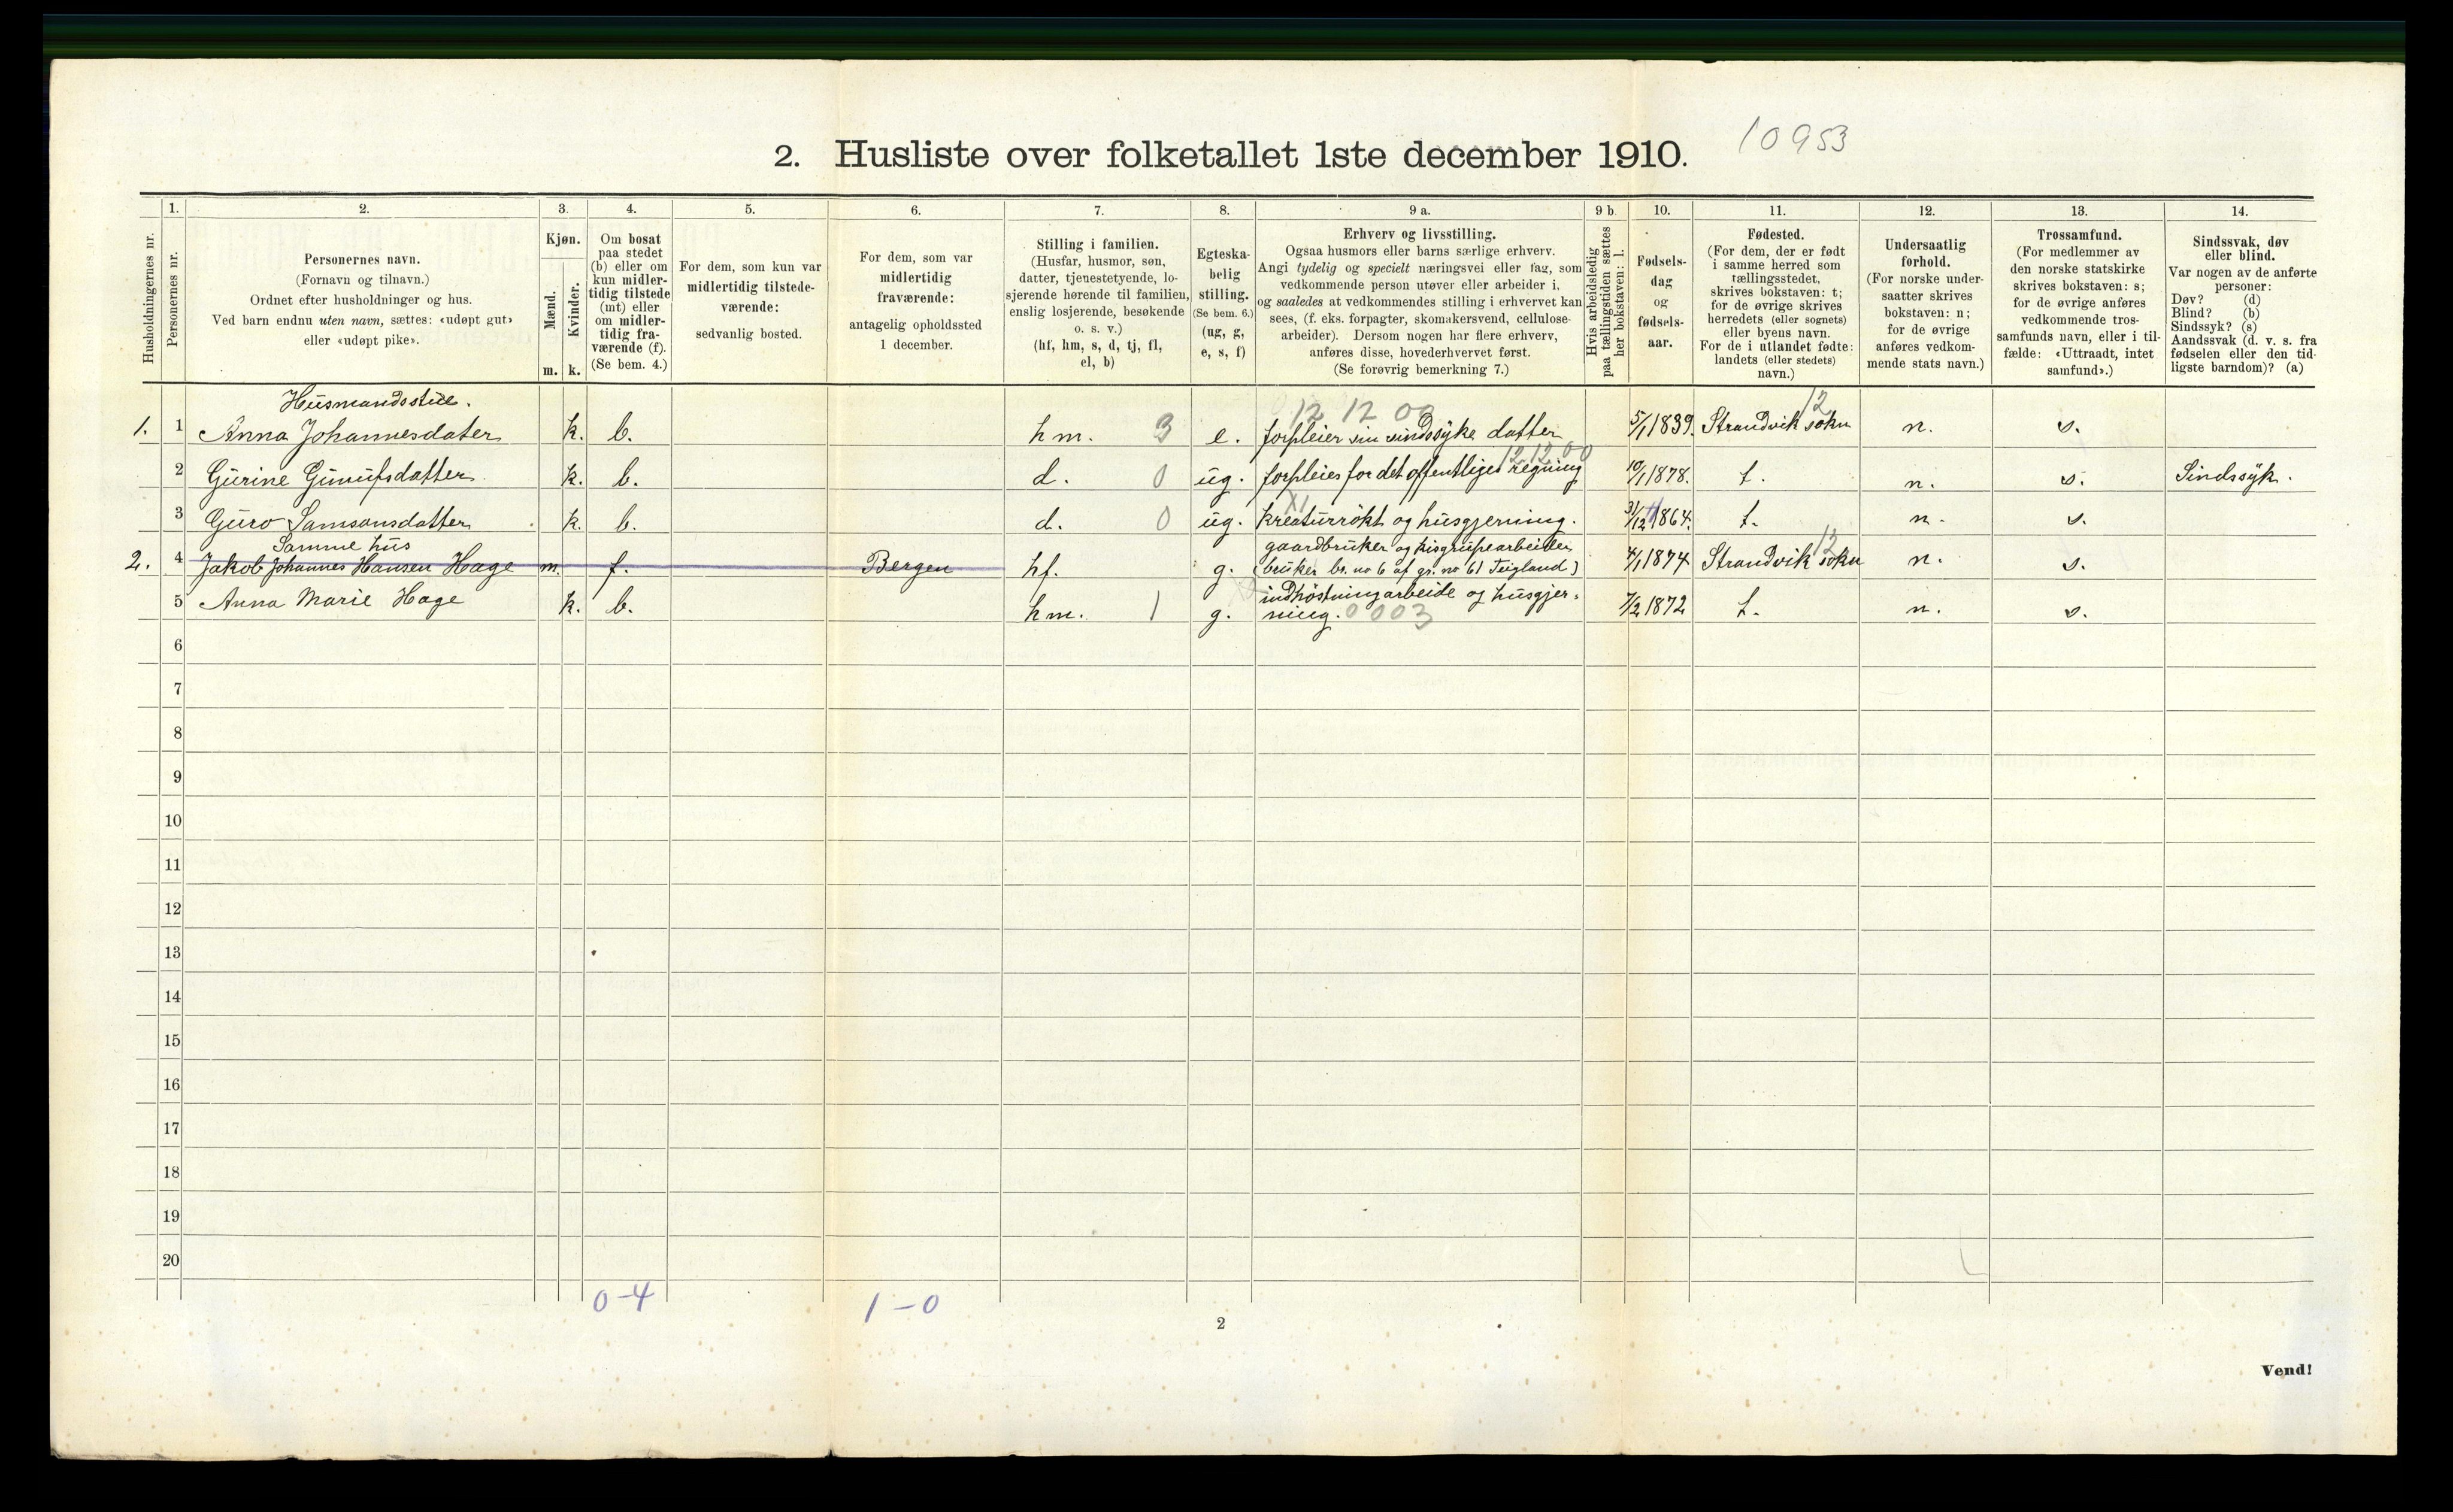 2. Husliste over folketallet 1ste december 1910. 10953
Husholdningernes nr.
1.
Personernes nr.
2.
Personernes navn.
(Fornavn og tilnavn.)
Ordnet efter husholdninger og hus.
Ved barn endnu uten navn, sættes: «udøpt gut»
eller «udøpt pike».
3.
Kjøn.
Mænd.
Kvinder.
m. k.
4.
Om bosat
paa stedet
(b) eller om
kun midler-
tidig tilstede
(mt) eller
om midler-
tidig fra-
værende (f).
(Se bem. 4.)
5.
For dem, som kun var
midlertidig tilstede-
værende:
sedvanlig bosted.
6.
For dem, som var
midlertidig
fraværende:
antagelig opholdssted
1 december.
7.
Stilling i familien.
(Husfar, husmor, søn,
datter, tjenestetyende, lo-
sjerende hørende til familien,
enslig losjerende, besøkende
o. s. v.)
(hf, hm, s, d, tj, fl,
el, b)
8.
Egteska-
belig
stilling.
(Se bem. 6.)
(ug, g,
e, s, f)
9 a.
Erhverv og livsstilling.
Ogsaa husmors eller barns særlige erhverv.
Angi tydelig og specielt næringsvei eller fag, som
vedkommende person utøver eller arbeider i,
og saaledes at vedkommendes stilling i erhvervet kan
sees, (f. eks. forpagter, skomakersvend, cellulose-
arbeider). Dersom nogen har flere erhverv,
anføres disse, hovederhvervet først.
(Se forøvrig bemerkning 7.)
9 b.
Hvis arbeidsledig
paa tællingstiden sættes
her bokstaven: l.
10.
Fødsels-
dag
og
fødsels-
aar.
11.
Fødested.
(For dem, der er født
i samme herred som
tællingsstedet,
skrives bokstaven: t;
for de øvrige skrives
herredets (eller sognets)
eller byens navn.
For de i utlandet fødte:
landets (eller stedets)
navn.)
12.
Undersaatlig
forhold.
(For norske under-
saatter skrives
bokstaven: n;
for de øvrige
anføres vedkom-
mende stats navn.)
13.
Trossamfund.
(For medlemmer av
den norske statskirke
skrives bokstaven: s;
for de øvrige anføres
vedkommende tros-
samfunds navn, eller i til-
fælde: «Uttraadt, intet
samfund».)
14.
Sindssvak, døv
eller blind.
Var nogen av de anførte
personer:
Døv? (d)
Blind? (b)
Sindssyk? (s)
Aandssvak (d. v. s. fra
fødselen eller den tid-
ligste barndom)? (a)
Husmandsstue. 12 12 00 12
1. 1 Anna Johannesdater k. b. hm. 3 e. forpleier sin sindssyke datter 5/1 1839. Strandvik sokn n. s.
12 12 00
2 Gurine Gunulfsdatter k. b. d. 0 ug. forpleies for det offentliges regning 10/1 1878. t. n. s. Sindssyk.
X1
3 Guro Samsonsdatter k. b. d. 0 ug. kreaturrökt og husgjerning. 31/12 1864. t. n. s.
Samme hus gaardbruker og kisgrubearbeider 12
2. 4 Jakob Johannes Hansen Hage m. f. Bergen hf. g. (bruker br. no 6 af gr. no 61 Teigland) 4/1 1874 Strandvik sokn n. s.
5 Anna Marie Hage k. b. hm. 1 g. indhöstningarbeide og husgjer- 7/2 1872 t. n. s.
ning. 0003
6
7
8
9
10
11
12
13
14
15
16
17
18
19
20
0-4 1-0
2
Vend!